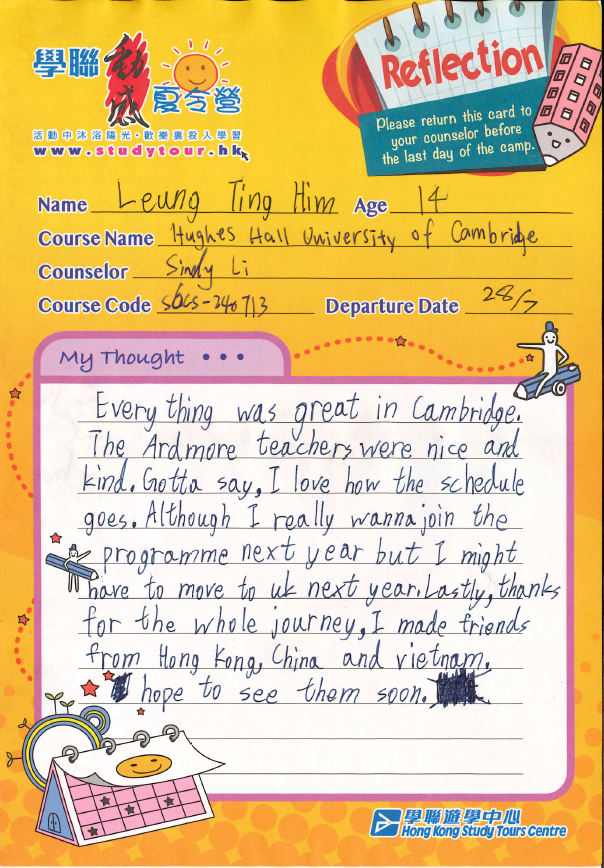 學聯 動感 夏令營
活動中沐浴陽光・歡樂裏投入學習
www.studytour.hk
Reflection
Please return this card to
your counselor before
the last day of the camp.
Name Leung Ting Him Age 14
Course Name Hughes Hall University of Cambridge
Counselor Sindy Li
Course Code sbcs-240713 Departure Date 28/7
My Thought • • •
Every thing was great in Cambridge.
The Ardmore teachers were nice and
kind. Gotta say, I love how the schedule
goes. Although I really wanna join the
programme next year but I might
have to move to uk next year. Lastly, thanks
for the whole journey, I made friends
from Hong Kong, China and vietnam.
hope to see them soon.
學聯遊學中心
Hong Kong Study Tours Centre